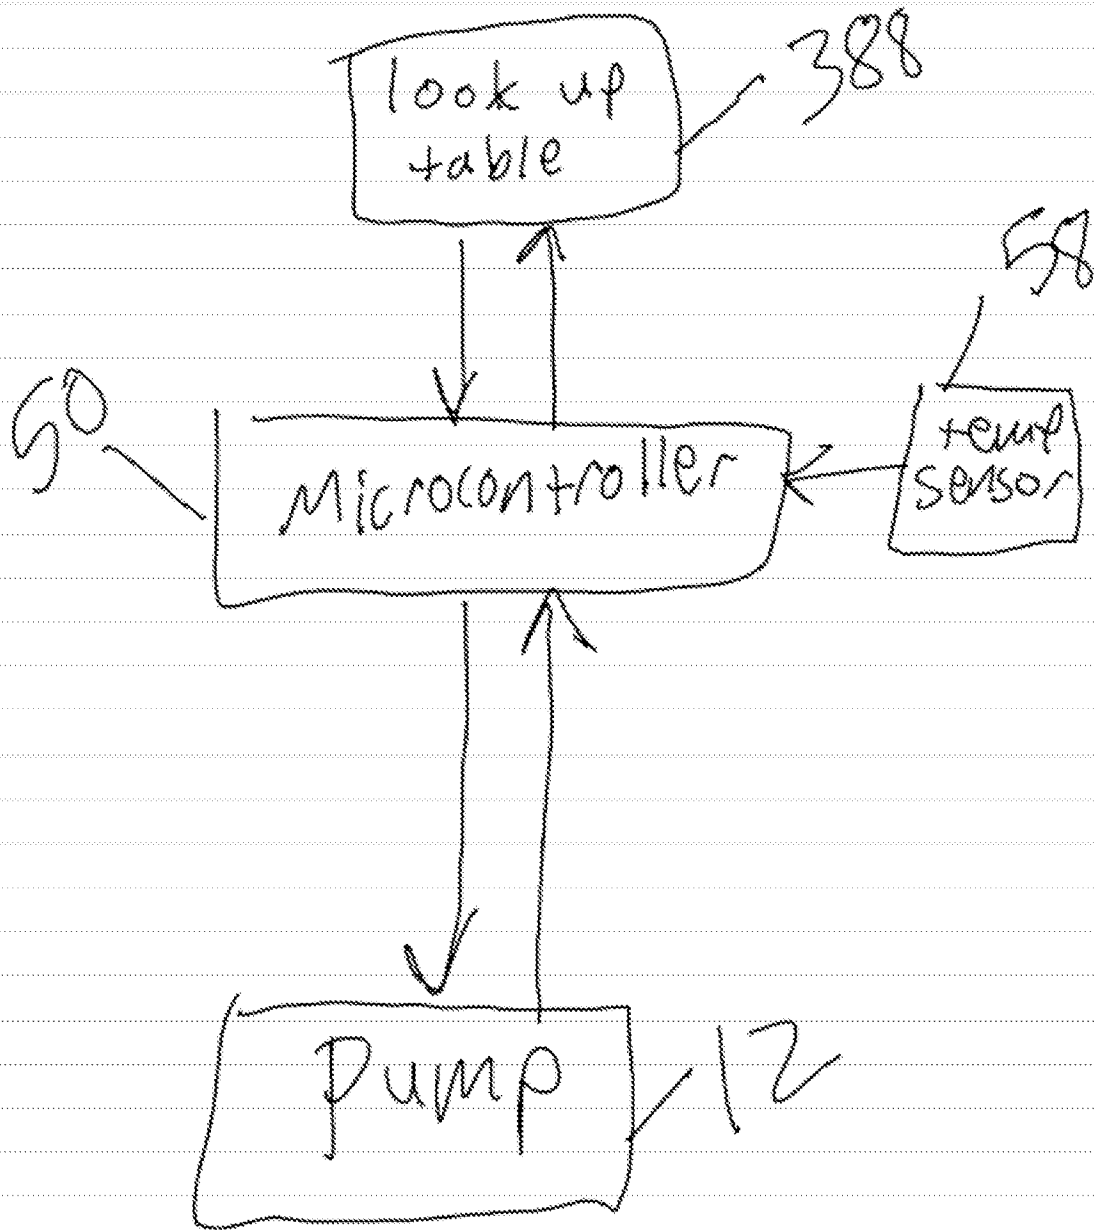 look up
table
388
58
50
Microcontroller
temp
sensor
Pump
12